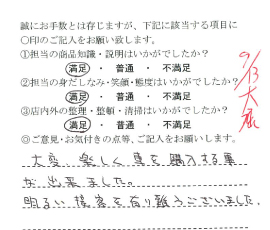 誠にお手数とは存じますが、下記に該当する項目に
〇印のご記入をお願い致します。
①担当の商品知識・説明はいかがでしたか？
満足 ・ 普通 ・ 不満足
②担当の身だしなみ・笑顔・態度はいかがでしたか？
満足 ・ 普通 ・ 不満足
③店内外の整理・整頓・清掃はいかがでしたか？
満足 ・ 普通 ・ 不満足
◎ご意見・お気付きの点等、ご記入をお願いします。
大変 楽しく 車を購入する事
が 出来ました。
明るい 接客を有り難うございました。
9/13